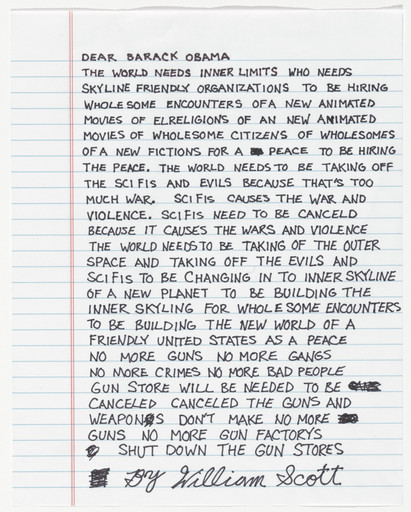 DEAR BARACK OBAMA
THE WORLD NEEDS INNER LIMITS WHO NEEDS
SKYLINE FRIENDLY ORGANIZATIONS TO BE HIRING
WHOLESOME ENCOUNTERS OF A NEW ANIMATED
MOVIES OF ELRELIGIONS OF AN NEW ANIMATED
MOVIES OF WHOLESOME CITIZENS OF WHOLESOMES
OF A NEW FICTIONS FOR A PEACE TO BE HIRING
THE PEACE. THE WORLD NEEDS TO BE TAKING OFF
THE SCI FIS AND EVILS BECAUSE THAT'S TOO
MUCH WAR. SCI FIS CAUSES THE WAR AND
VIOLENCE. SCI FIS NEED TO BE CANCELD
BECAUSE IT CAUSES THE WARS AND VIOLENCE
THE WORLD NEEDS TO BE TAKING OF THE OUTER
SPACE AND TAKING OFF THE EVILS AND
SCI FIS TO BE CHANGING IN TO INNER SKYLINE
OF A NEW PLANET TO BE BUILDING THE
INNER SKYLING FOR WHOLESOME ENCOUNTERS
TO BE BUILDING THE NEW WORLD OF A
FRIENDLY UNITED STATES AS A PEACE
NO MORE GUNS NO MORE GANGS
NO MORE CRIMES NO MORE BAD PEOPLE
GUN STORE WILL BE NEEDED TO BE
CANCELED CANCELED THE GUNS AND
WEAPONS DON'T MAKE NO MORE
GUNS NO MORE GUN FACTORYS
SHUT DOWN THE GUN STORES
By William Scott